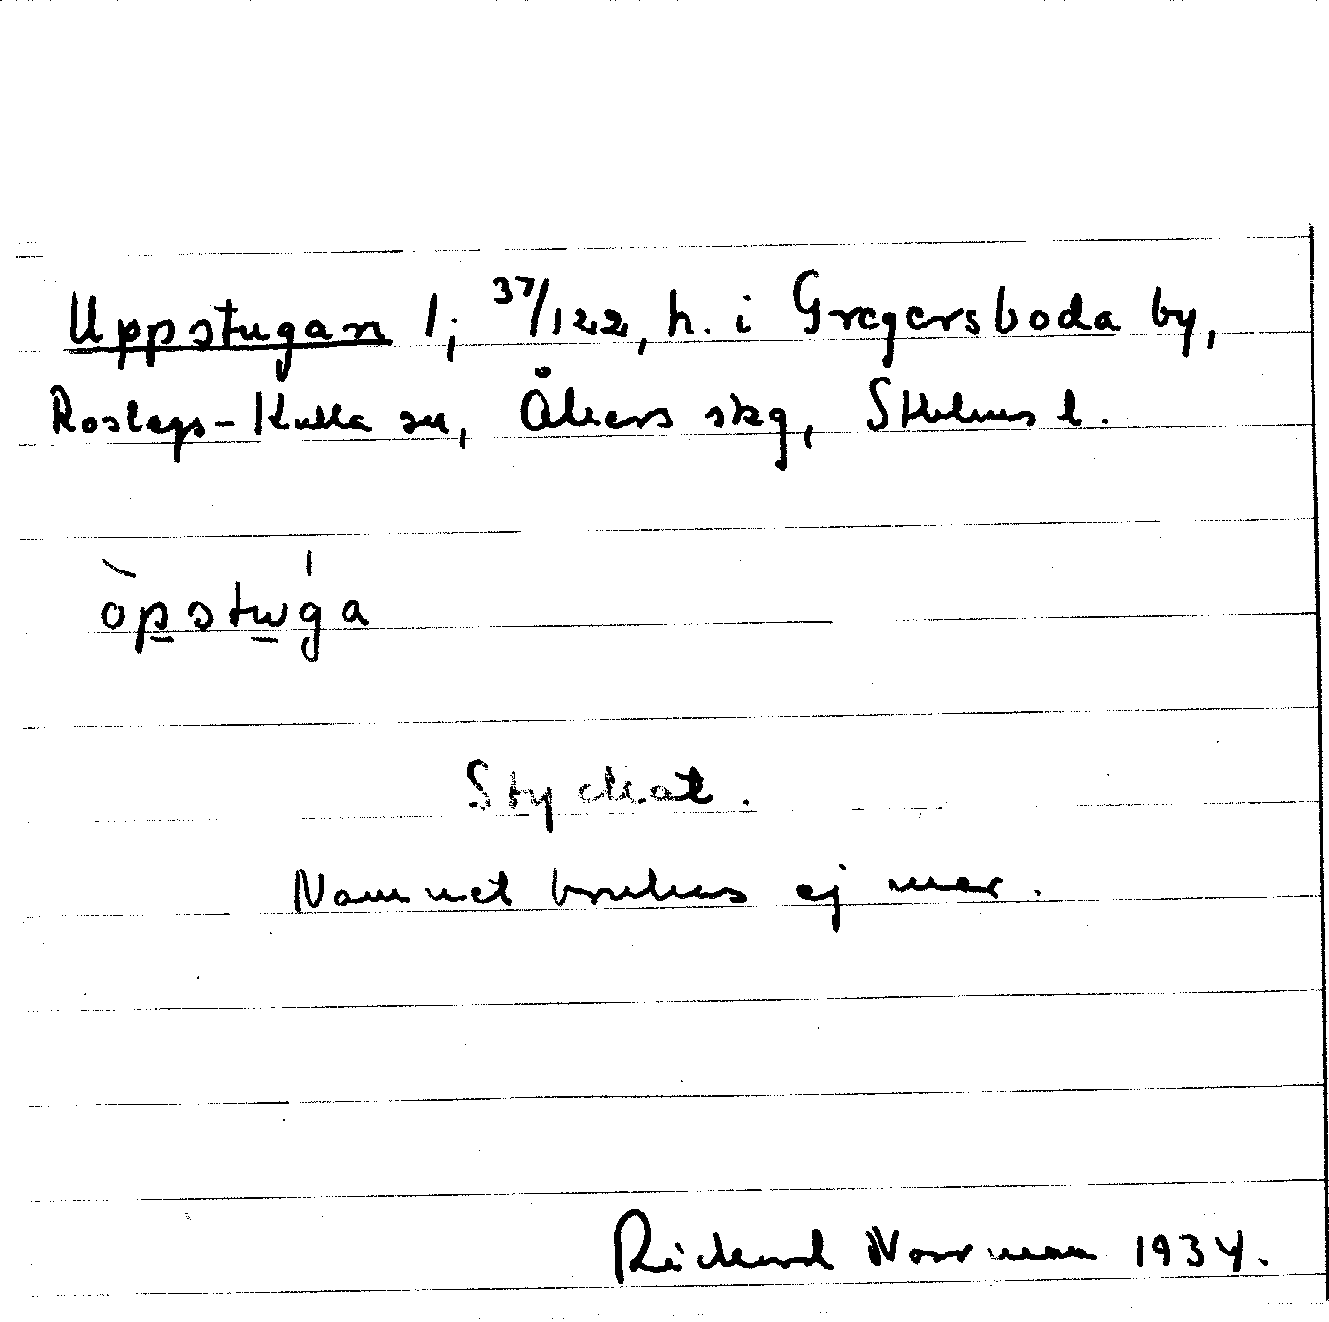 Uppstugan 1; 37/122, h. i Gregersboda by,
Roslags-Kulla sn, Åkers skg, Sthlms l.
òpstuǵa
Styckat.
Namnet brukas ej mer.
Rickard Norrman 1934.